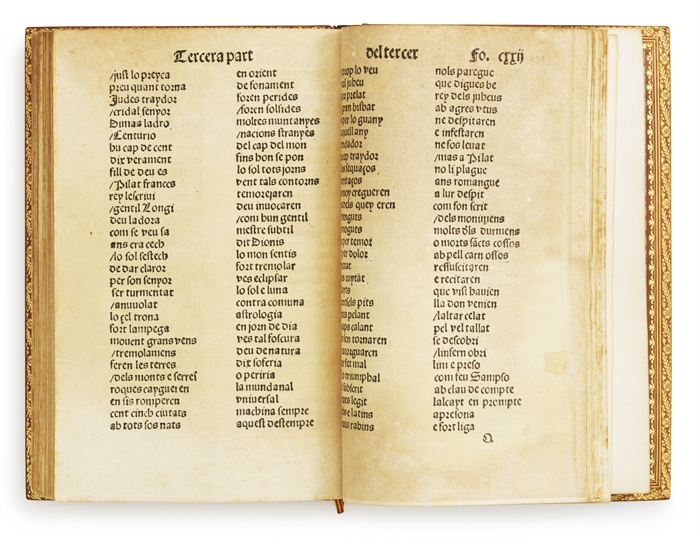 Tercera part
/just lo preyca
preu quant torna
Judes traydor
/cridal senyor
Dimas ladro
/Centurio
hu cap de cent
dix verament
fill de deu es
/Pilat frances
rey lescriui
/gentil Longi
deu ladora
com se veu sa
ans era cech
/lo sol sestech
de dar claror
per son senyor
ser turmentat
/anuuolat
lo çel trona
fort lampega
mouent grans vens
/tremolamens
feren les terres
/dels monts e serres
roques caygueren
en sis romperen
cent cinch ciutats
ab tots sos nats
en orient
de fonament
foren perides
/foren sossides
moltes muntanyes
/nacions stranyes
del cap del mon
fins hon se pon
lo sol tots jorns
vent tals contorns
temorejaren
deu inuocaren
/com hun gentil
mestre subtil
dit Dionis
lo mon sentis
fort tremolar
ves eclipsar
lo sol e luna
contra comuna
astrologia
en jorn de dia
ves tal foscura
deu de natura
dix soferia
o periria
la mundanal
vniuersal
machina sempre
aquest destempre
del tercer
Fo. cxxij
lo veu
jubeu
prelat
bisbat
lo guany
traydor
cregueren
quey eren
temor
dolor
pits
pelant
calant
tornaren
mal
triumphal
legit
e latins
rabins
nols paregue
que digues be
rey dels jubeus
ab agres veus
ne despitaren
e infestaren
ne fos leuat
/mas a Pilat
no li plague
ans romangue
a lur despit
com fon scrit
/dels moniments
molts dels durmens
o morts sacts cossos
ab pell carn ossos
ressuscitaren
e recitaren
que vist hauien
lla don venien
/laltar celat
pel vel tallat
se descobri
/linfern obri
lim e preso
com feu Sampso
ab clau de compte
lalcayt en prompte
apresona
e fort liga